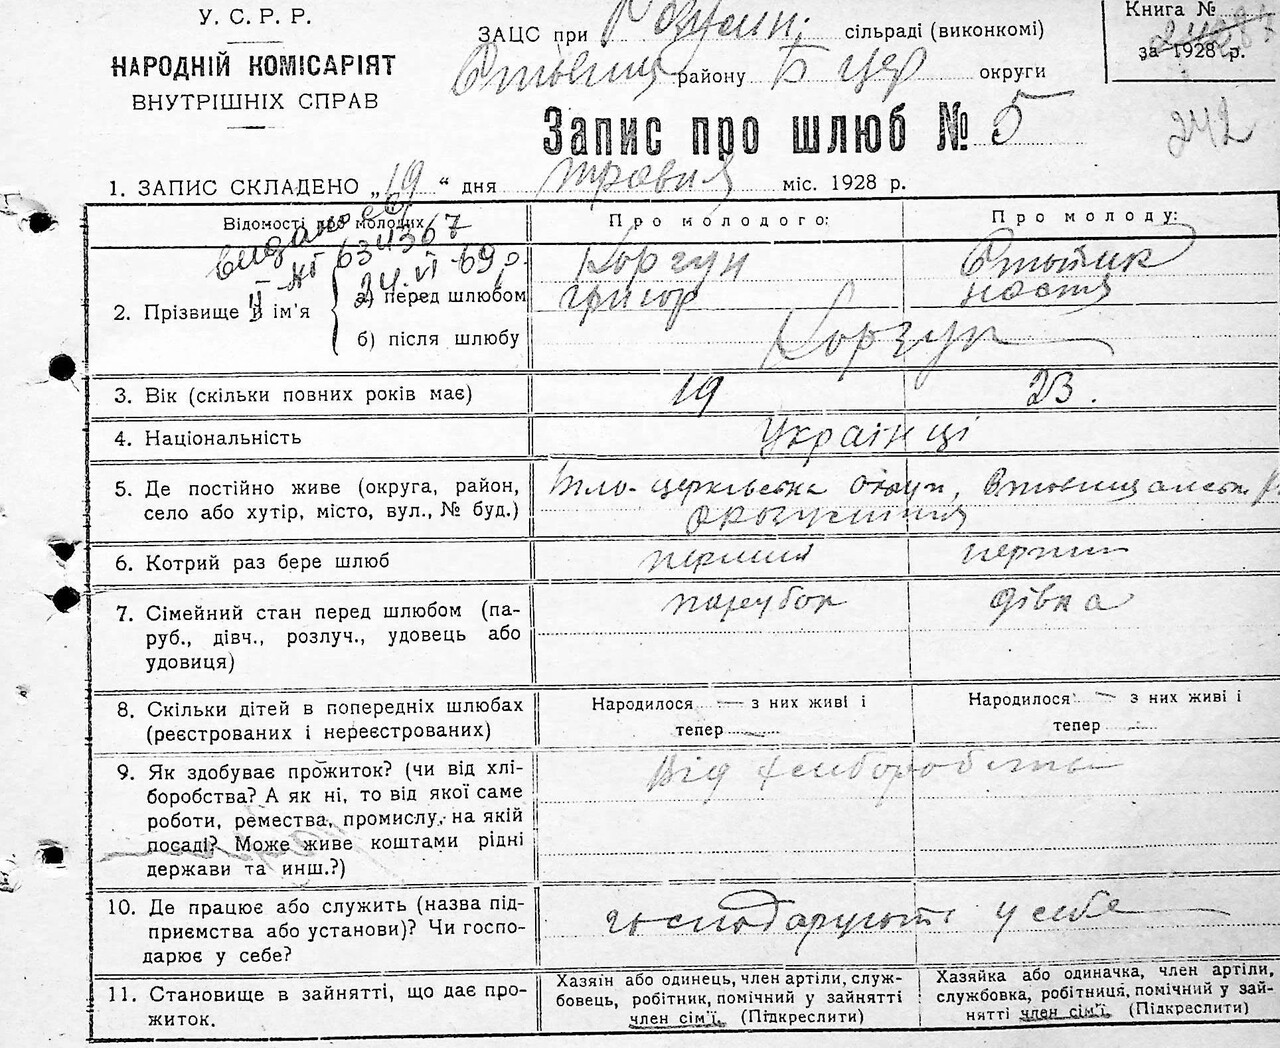 У. С. Р. Р.
НАРОДНІЙ КОМІСАРІЯТ
ВНУТРІШНІХ СПРАВ
ЗАЦС при сільраді (виконкомі)
району Б Цер округи
Книга №
за 1928 р.
242
Запис про шлюб № 5
1. ЗАПИС СКЛАДЕНО „19“ дня травня міс. 1928 р.
Відомості про молодих
Про молодого:
Про молоду:
видано
№ 634367
24. VI 69 р.
2. Прізвище й ім'я
а) перед шлюбом
Корзун
Григор
Настя
б) після шлюбу
Корзун
3. Вік (скільки повних років має)
19
23.
4. Національність
Українці
5. Де постійно живе (округа, район,
село або хутір, місто, вул., № буд.)
Біло-церківська округи,
6. Котрий раз бере шлюб
перший
перший
7. Сімейний стан перед шлюбом (па-
руб., дівч., розлуч., удовець або
удовиця)
парубок
дівка
8. Скільки дітей в попередніх шлюбах
(реєстрованих і нереєстрованих)
Народилося — з них живі і
тепер —
Народилося — з них живі і
тепер —
9. Як здобуває прожиток? (чи від хлі-
боробства? А як ні, то від якої саме
роботи, ремества, промислу, на якій
посаді? Може живе коштами рідні
держави та инш.?)
Від хліборобства
10. Де працює або служить (назва під-
приємства або установи)? Чи госпо-
дарює у себе?
господарують у себе
11. Становище в зайнятті, що дає про-
житок.
Хазяїн або одинець, член артіли, служ-
бовець, робітник, помічний у зайнятті
член сім'ї. (Підкреслити)
Хазяйка або одиначка, член артіли,
службовка, робітниця, помічний у зай-
нятті член сім'ї. (Підкреслити)